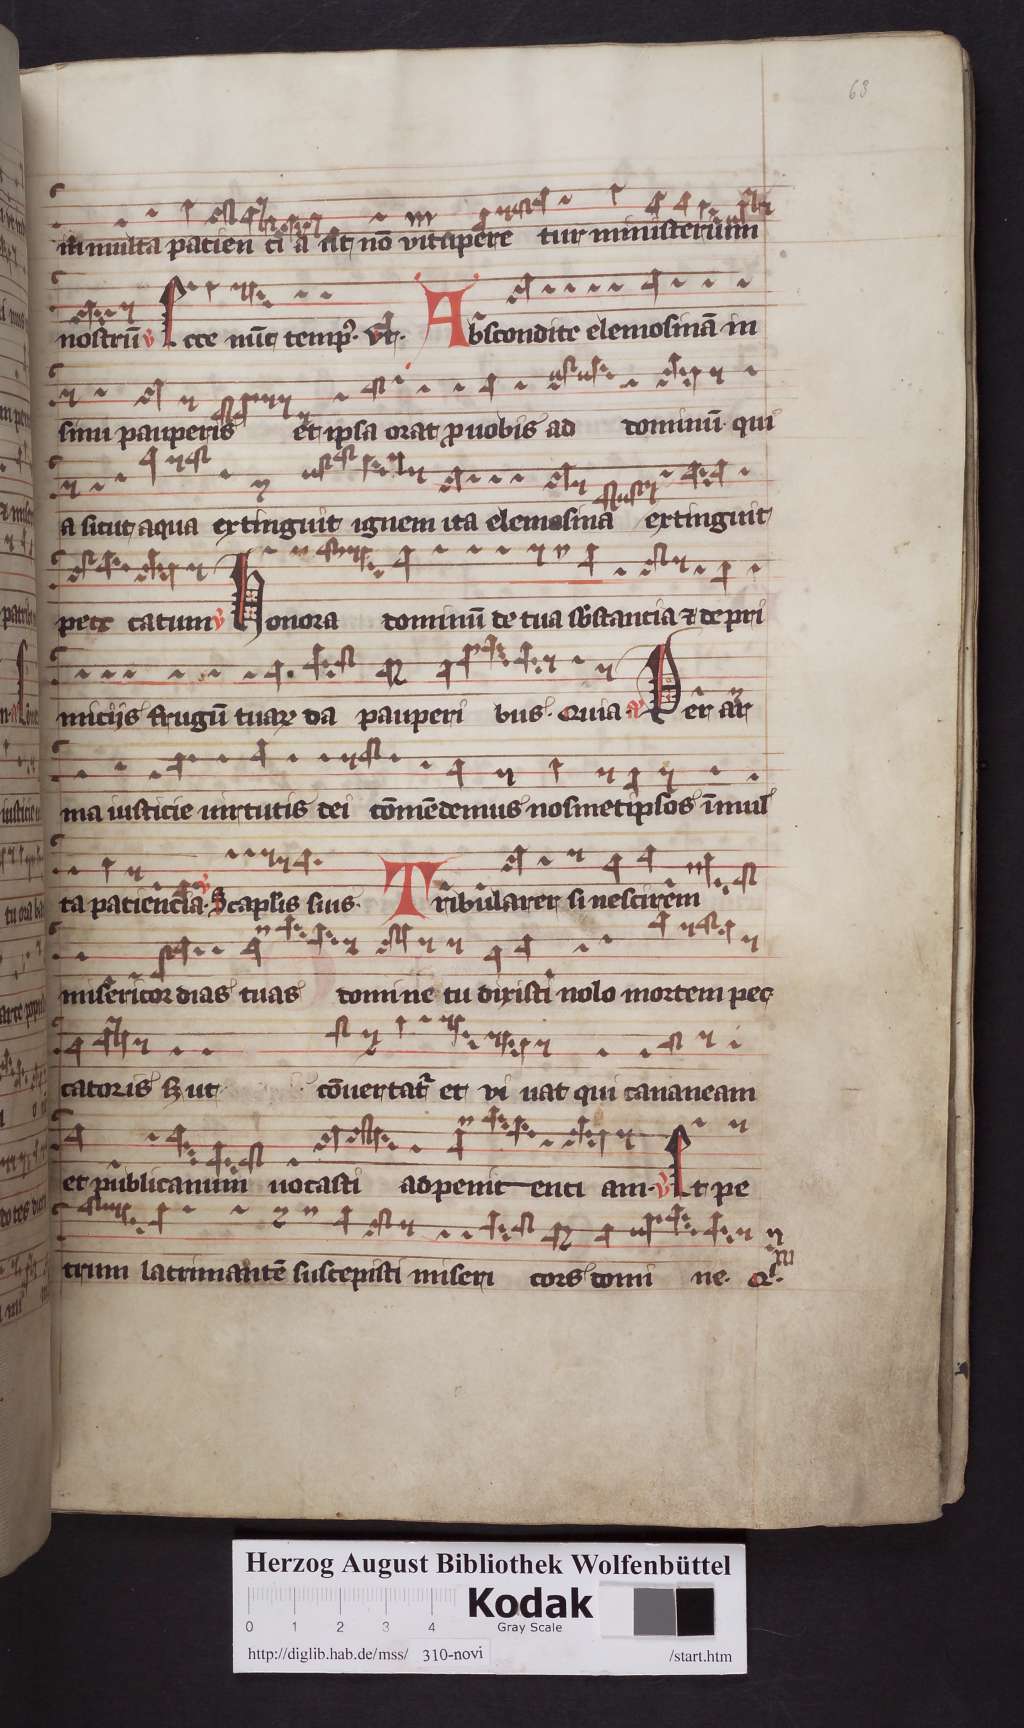 68
in multa patien ci a ut nō vitupere tur ministerium
nostrū v Ecce nūc temp9. vt. Abscondite elemosinā in
sinu pauperis et ipsa orat pro uobis ad dominū qui
a sicut aqua extinguit ignem ita elemosina extinguit
pecc catum v Honora dominū de tua sbstancia ⁊ de pri
miciis frugū tuaꝝ da pauperi bus. Quia Per ar
ma iusticie uirtutis dei cōmēdemus nosmetipsos ī mul
ta paciencia. v Scapulis suis. Tribularer si nescirem
misericordias tuas domine tu dixisti nolo mortem pec
catoris s3 ut cōuertatr et vi uat qui cananeam
et publicanum uocasti ad penit enci am. v Et pe
trum lacrimantē suscepisti miseri cors domi ne. Q
Herzog August Bibliothek Wolfenbüttel
0 1 2 3 4
Kodak
Gray Scale
http://diglib.hab.de/mss/ 310-novi /start.htm